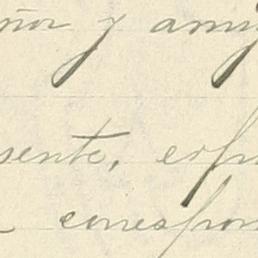 ñor y amig
sente, exp
corresfon